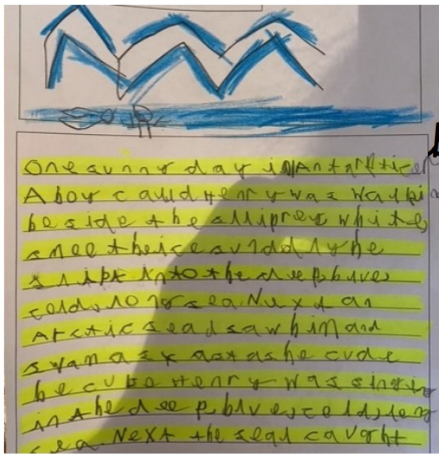 One sunny day in Antarctica
A boy calld Henry was walkin
beside the slliprey white
the ice sudddly he
slipt into the deep, blue,
cold, long sea. Next an
Arctic sead saw him and
swam as fast as he cude
becuse Henry was singing
in the deep, blue, cold, long
sea. Next the seal caught